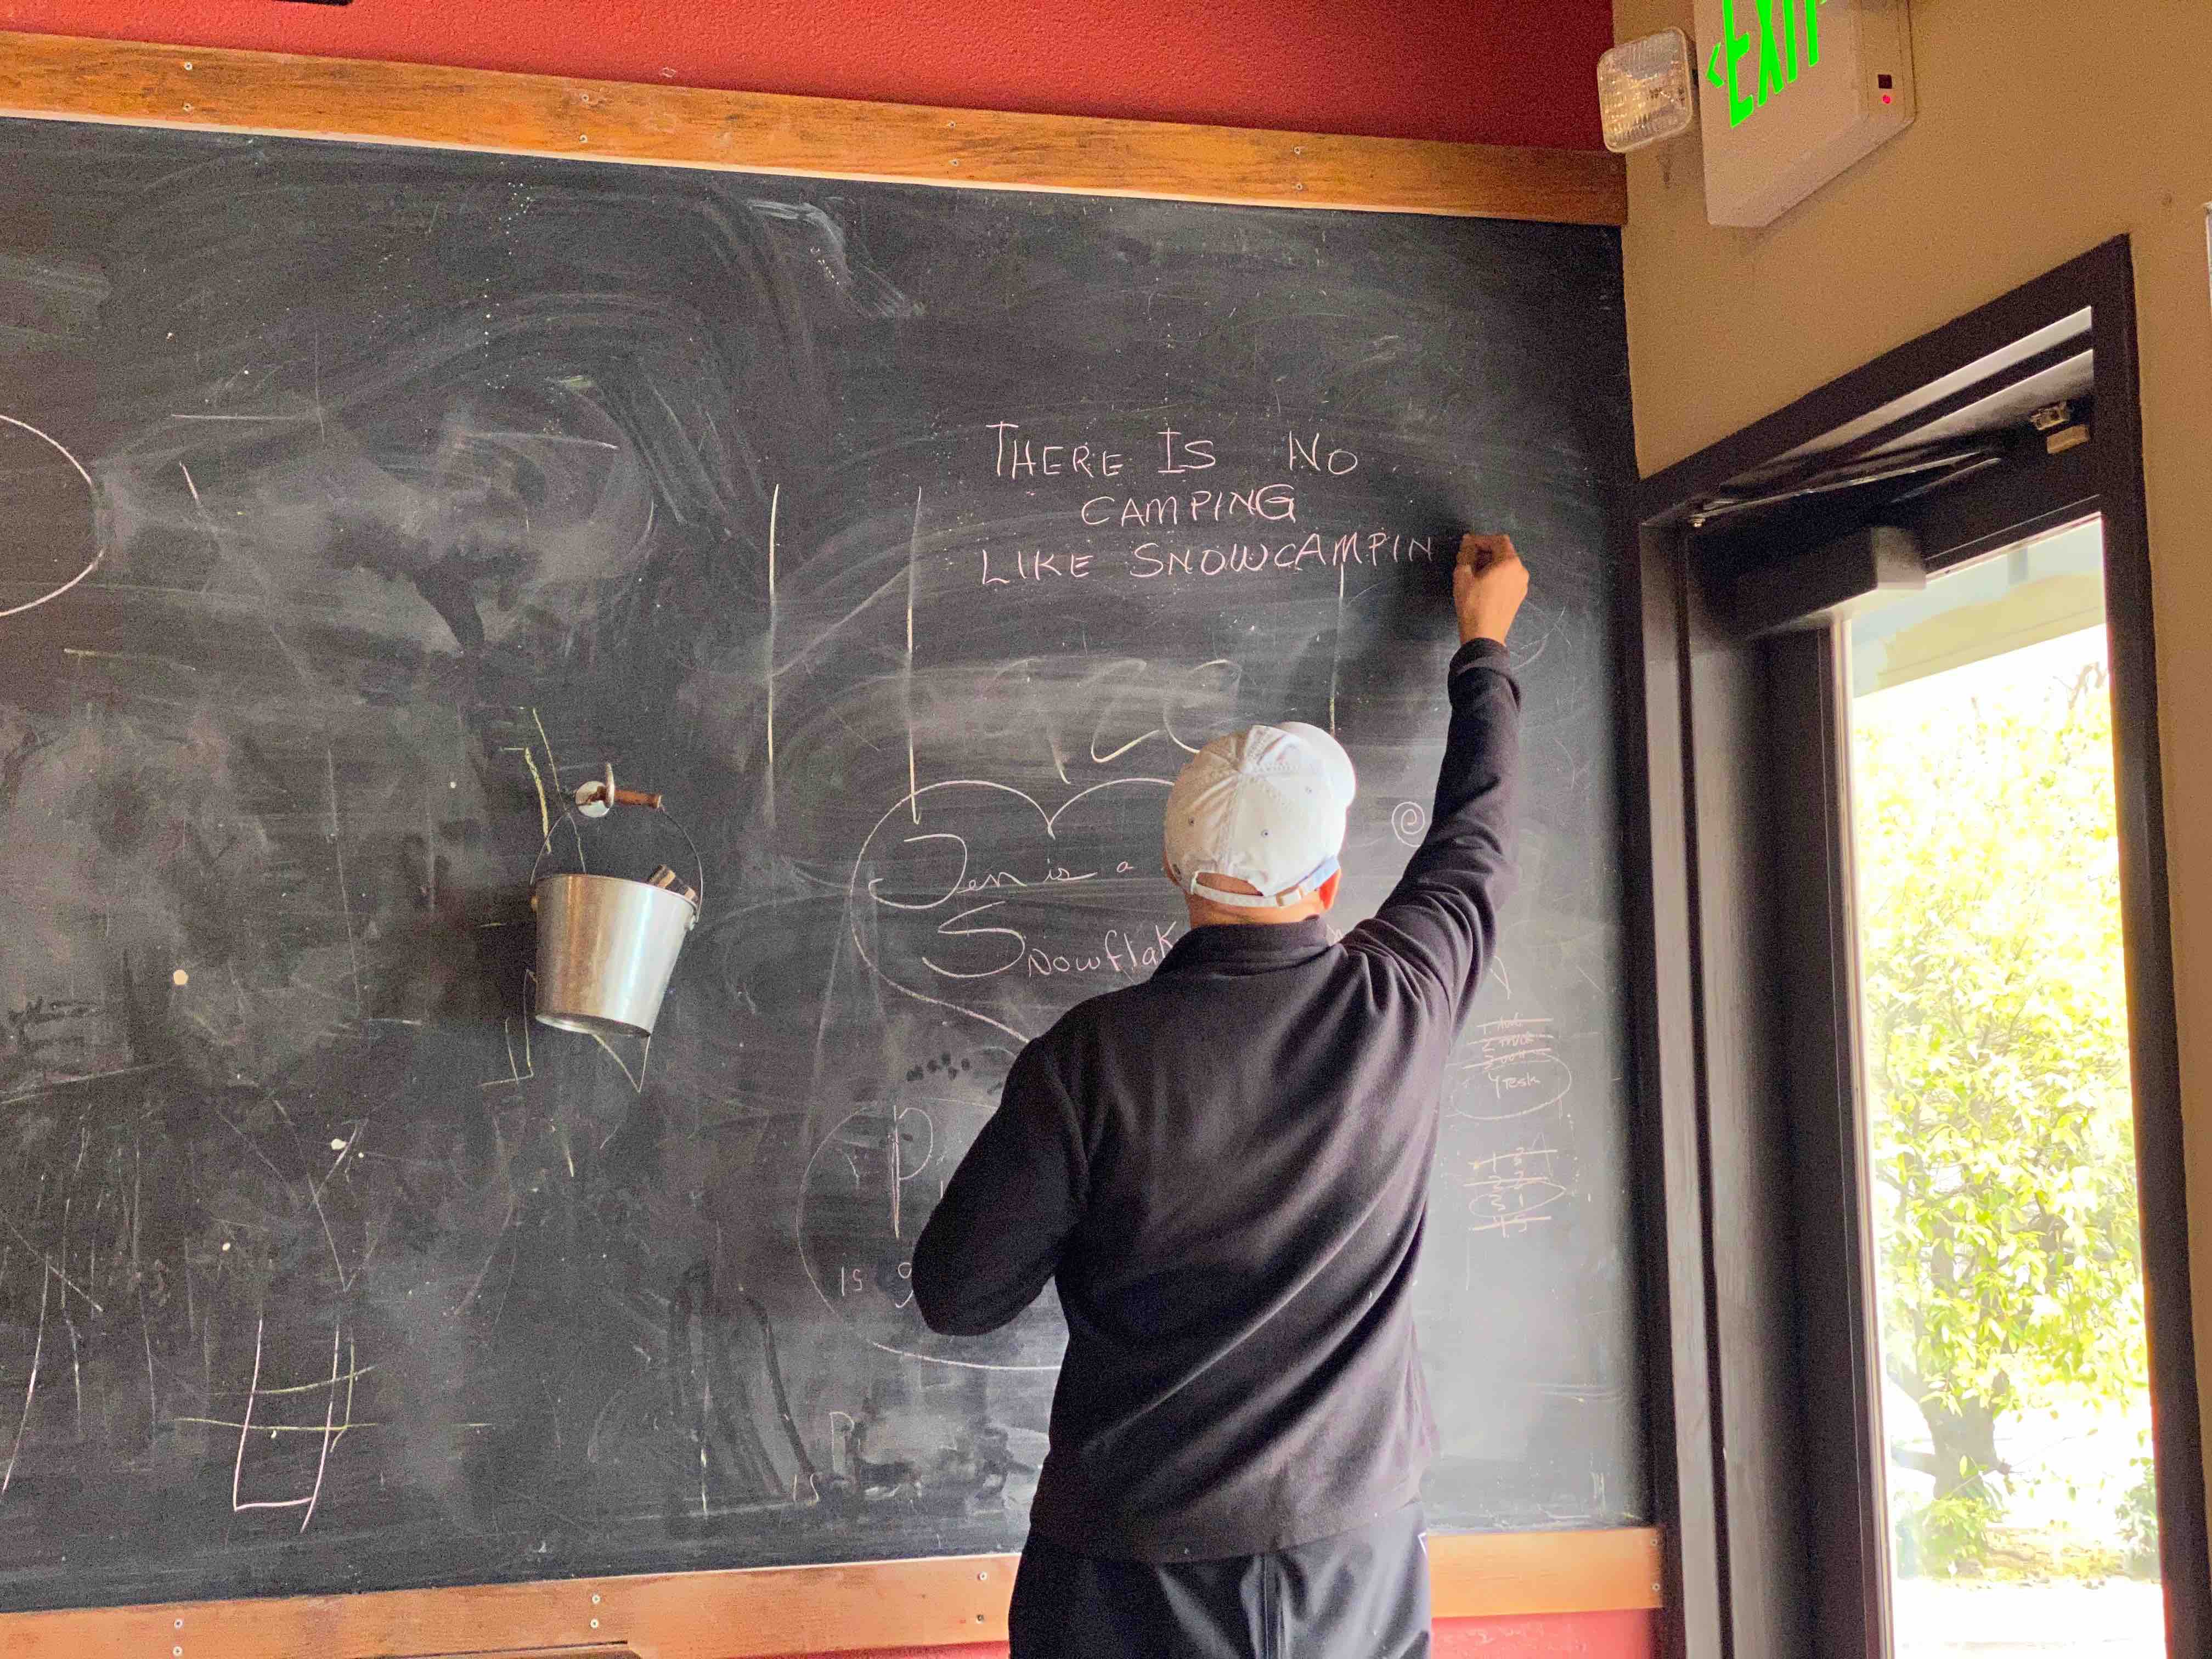 EXIT
THERE IS NO
CAMPING
LIKE SNOWCAMPIN
Jen is a
Snowflak
P
IS
4 TESK